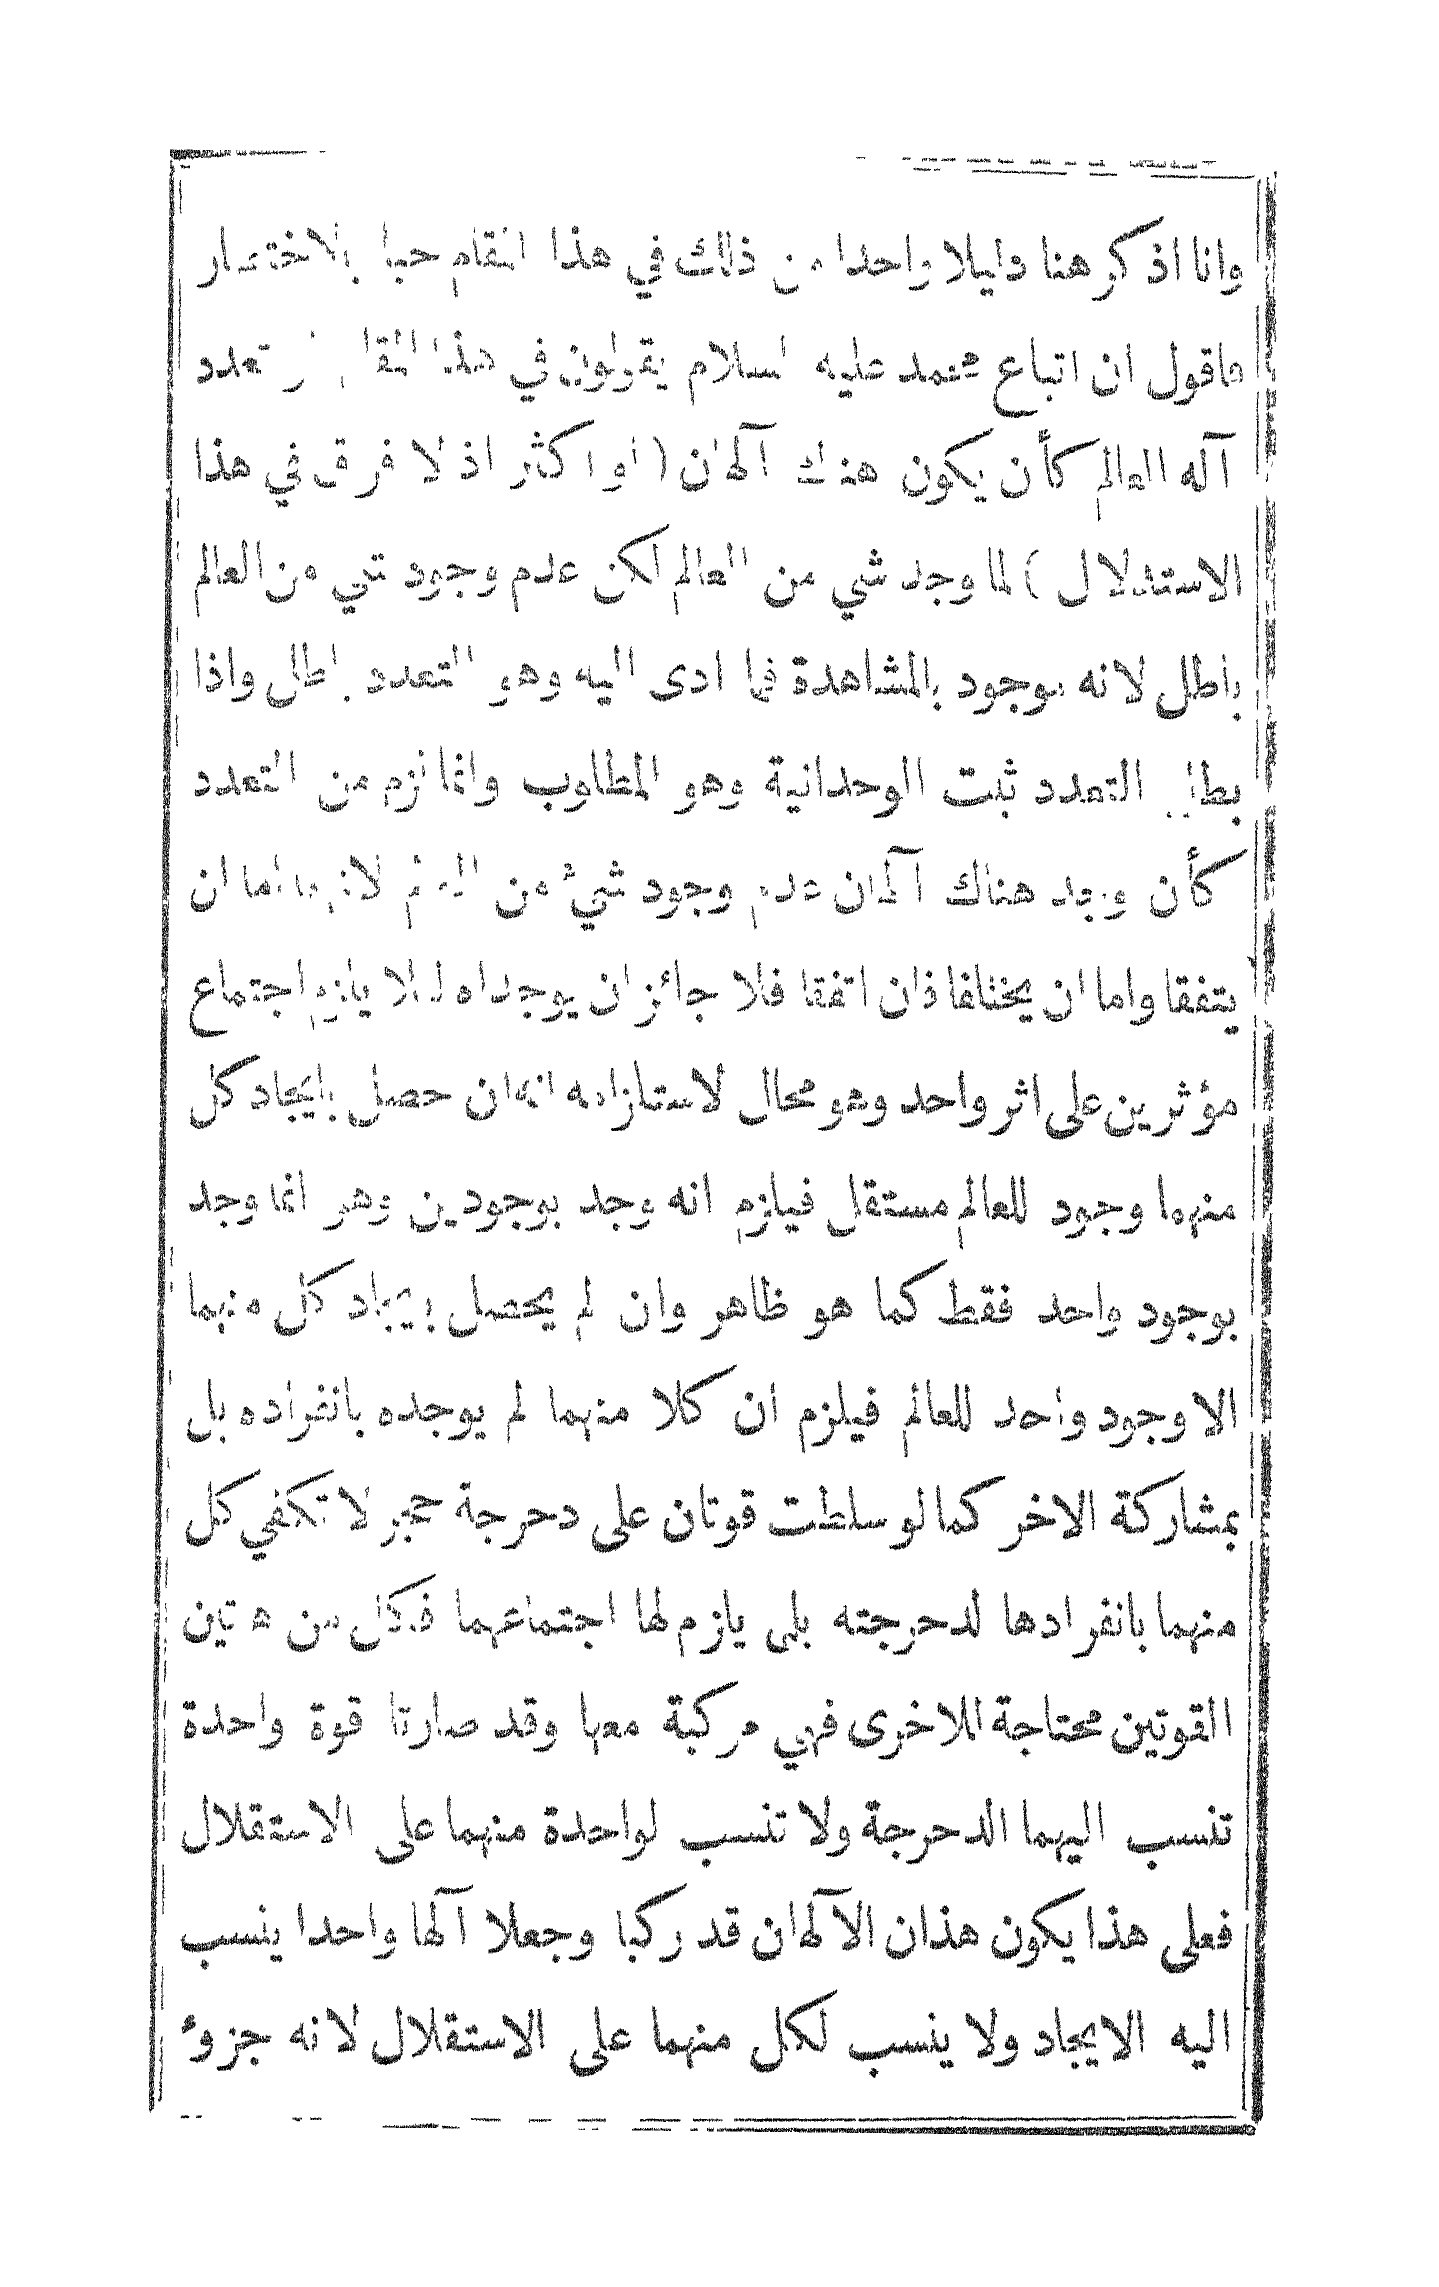 وانا اذكر هنا دليلا واحدا من ذلك في هذا المقام حبا بالاختصار
فاقول ان اتباع محمد عليه السلام يقولون في هذا المقام لو تعدد
آله العالم كأن يكون هناك آلهان (او اكثر اذ لا فرق في هذا
الاستدلال) لما وجد شي من العالم لكن عدم وجود شي من العالم
باطل لانه موجود بالمشاهدة فما ادى اليه وهو التعدد باطل واذا
بطل التعدد ثبت الوحدانية وهو المطلوب وانما لزم من التعدد
كأن وجد هناك آلهان عدم وجود شيء من العالم لانهما اما ان
يتفقا واما ان يختلفا فان اتفقا فلا جائز ان يوجداه لئلا يلزم اجتماع
مؤثرين على اثر واحد وهو محال لاستلزامه انه ان حصل بايجاد كل
منهما وجود للعالم مستقل فيلزم انه وجد بوجودين وهو انما وجد
بوجود واحد فقط كما هو ظاهر وان لم يحصل بايجاد كل منهما
الا وجود واحد للعالم فيلزم ان كلا منهما لم يوجده بانفراده بل
بمشاركة الاخر كما لو سلطت قوتان على دحرجة حجر لا تكفي كل
منهما بانفرادها لدحرجته بل يلزم لها اجتماعهما فكل من هاتين
القوتين محتاجة للاخرى فهي مركبة معها وقد صارتا قوة واحدة
تنسب اليهما الدحرجة ولا تنسب لواحدة منهما على الاستقلال
فعلى هذا يكون هذان الآلهان قد ركبا وجعلا آلها واحدا ينسب
اليه الايجاد ولا ينسب لكل منهما على الاستقلال لانه جزوء